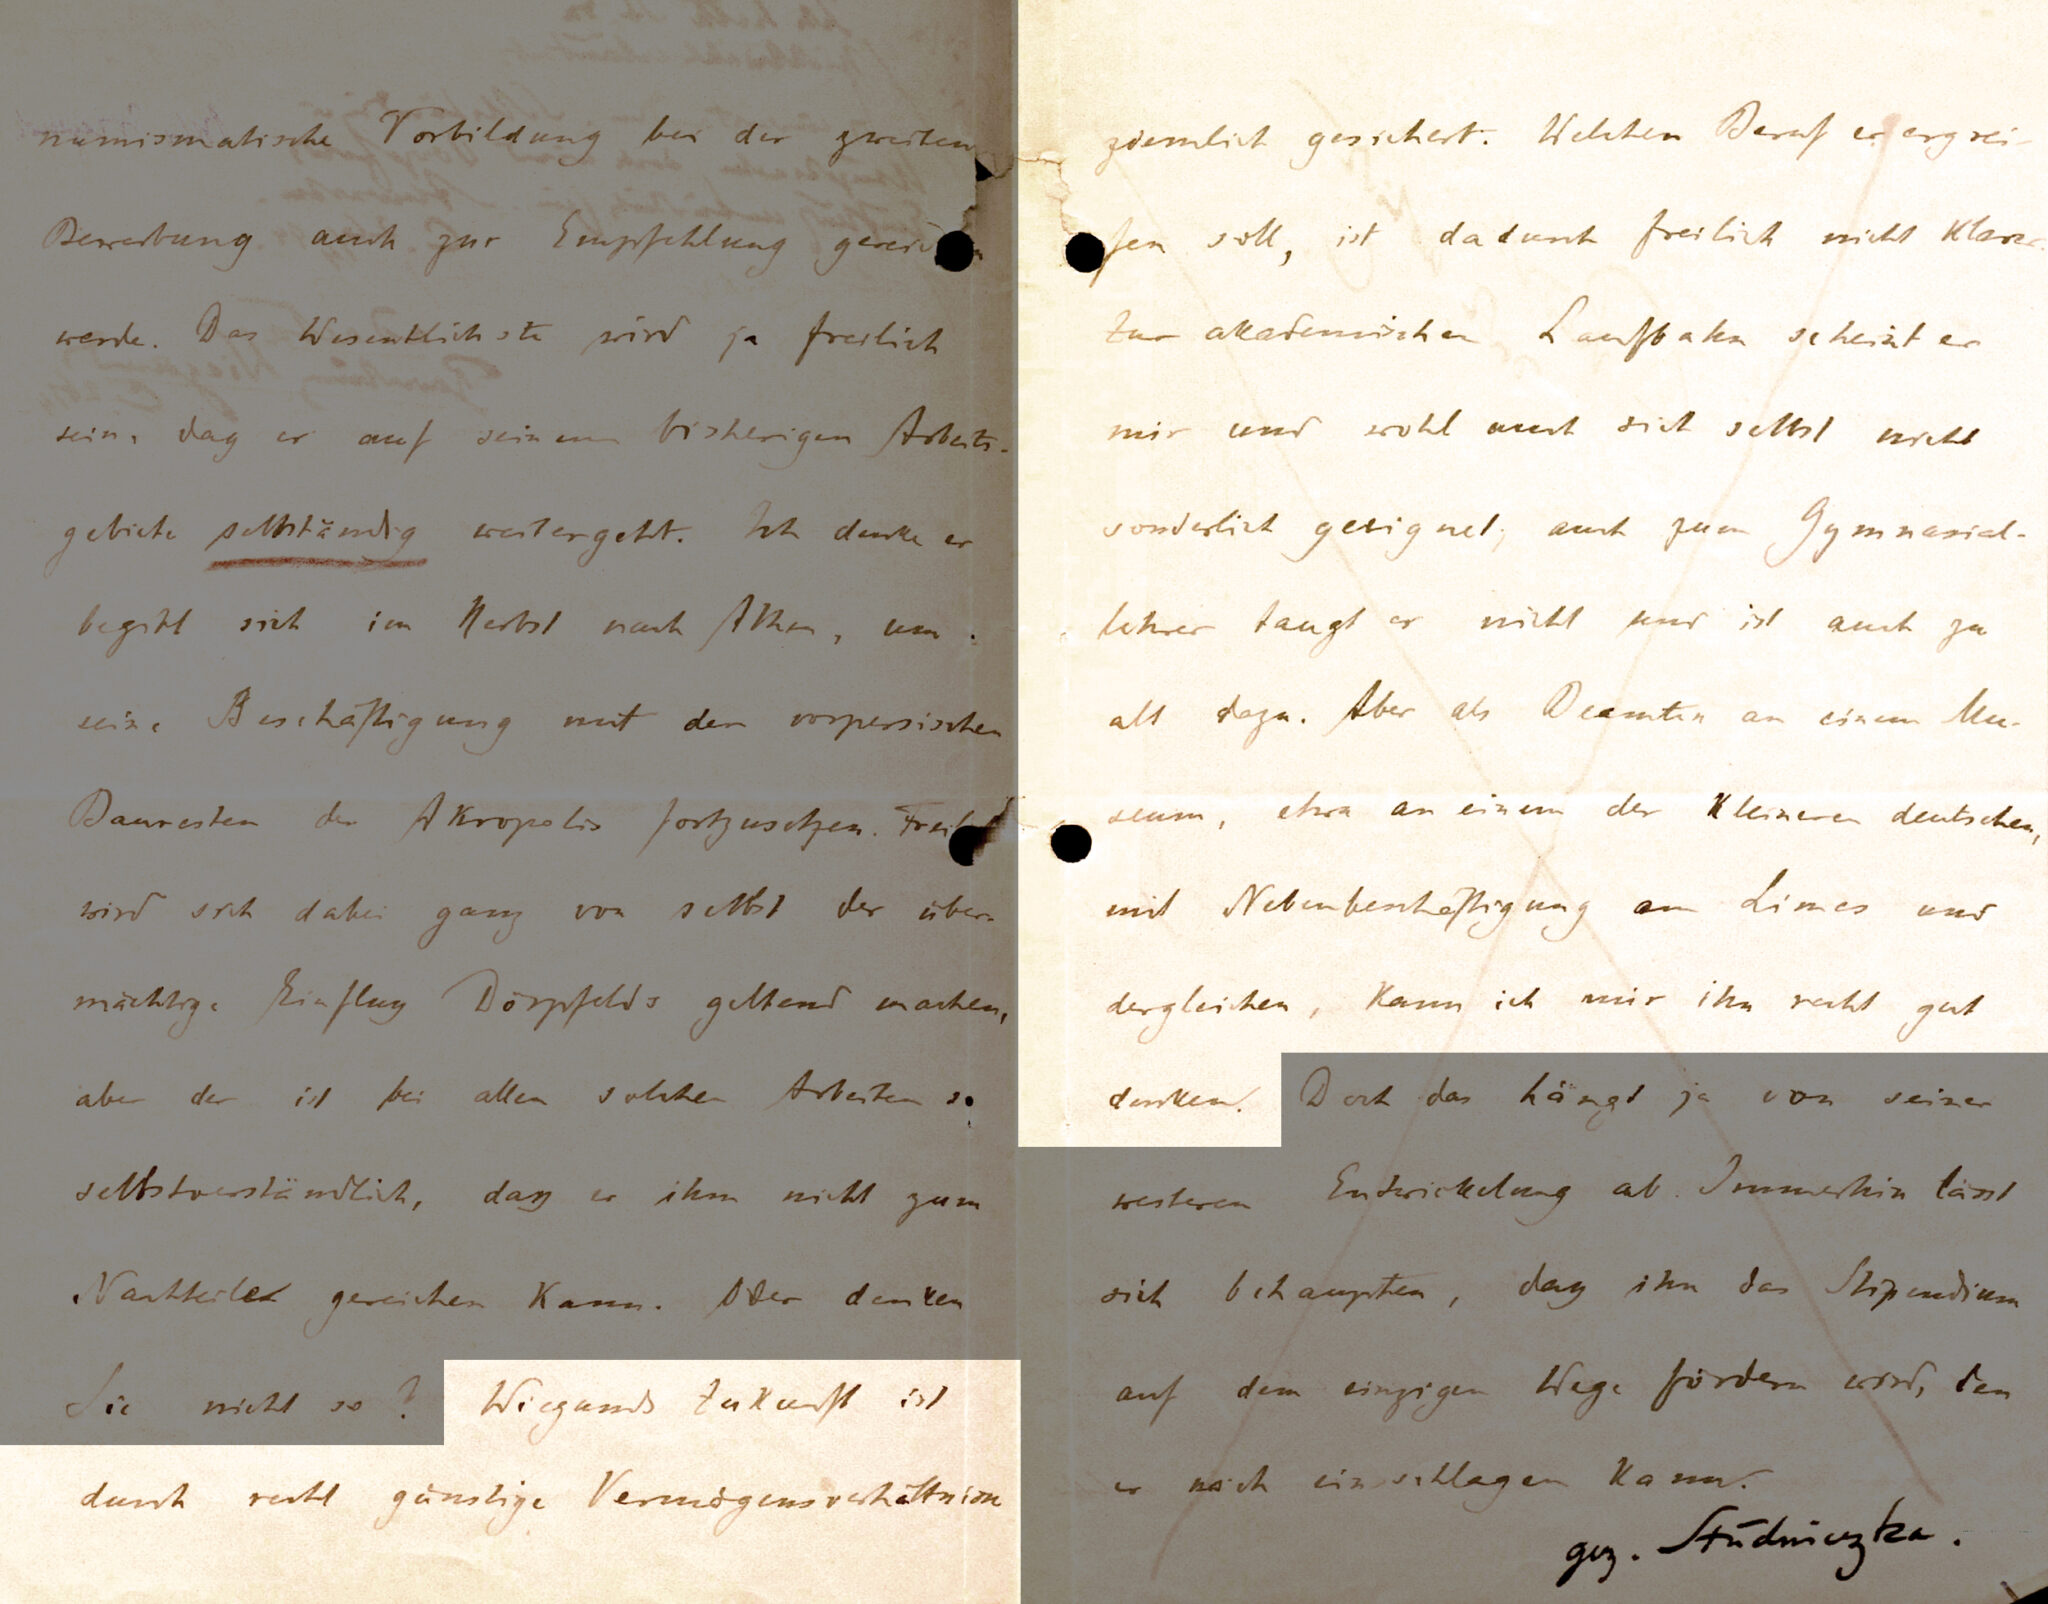 numismatische Vorbildung bei der zweiten
Bewerbung auch zur Empfehlung gereichen
werde. Das Wesentlichste wird ja freilich
sein, daß er auf seinem bisherigen Arbeits-
gebiete selbständig weitergeht. Ich denke er
begibt sich im Herbst nach Athen, um
seine Beschäftigung mit den vorpersischen
Bauresten der Akropolis fortzusetzen. Freilich
wird sich dabei ganz von selbst der über-
mächtige Einfluß Dörpfelds geltend machen,
aber der ist bei allen solchen Arbeiten so
selbstverständlich, daß er ihm nicht zum
Nachteile gereichen kann. Oder denken
Sie nicht so? Wiegands Zukunft ist
durch recht günstige Vermögensverhältnisse
ziemlich gesichert. Welchen Beruf er ergrei-
fen soll, ist dadurch freilich nicht klarer.
Zur akademischen Laufbahn scheint er
mir und wohl auch sich selbst nicht
sonderlich geeignet; auch zum Gymnasial-
lehrer taugt er nicht und ist auch zu
alt dazu. Aber als Beamten an einem Mu-
seum, etwa an einem der kleineren deutschen,
mit Nebenbeschäftigung am Limes und
dergleichen, kann ich mir ihn recht gut
denken. Doch das hängt ja von seiner
weiteren Entwickelung ab. Immerhin lässt
sich behaupten, daß ihn das Stipendium
auf dem einzigen Wege fördern wird, den
er noch einschlagen kann.
gez. Studniczka.